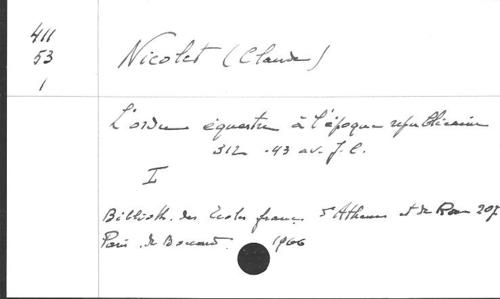 411
53
1
Nicolet (Claude)
L'ordre équestre à l'époque républicaine
312 - 43 av. J. C.
I
Biblioth. des Ecoles franç. d'Athenes et de Rome 207
Paris. de Boccard. 1966